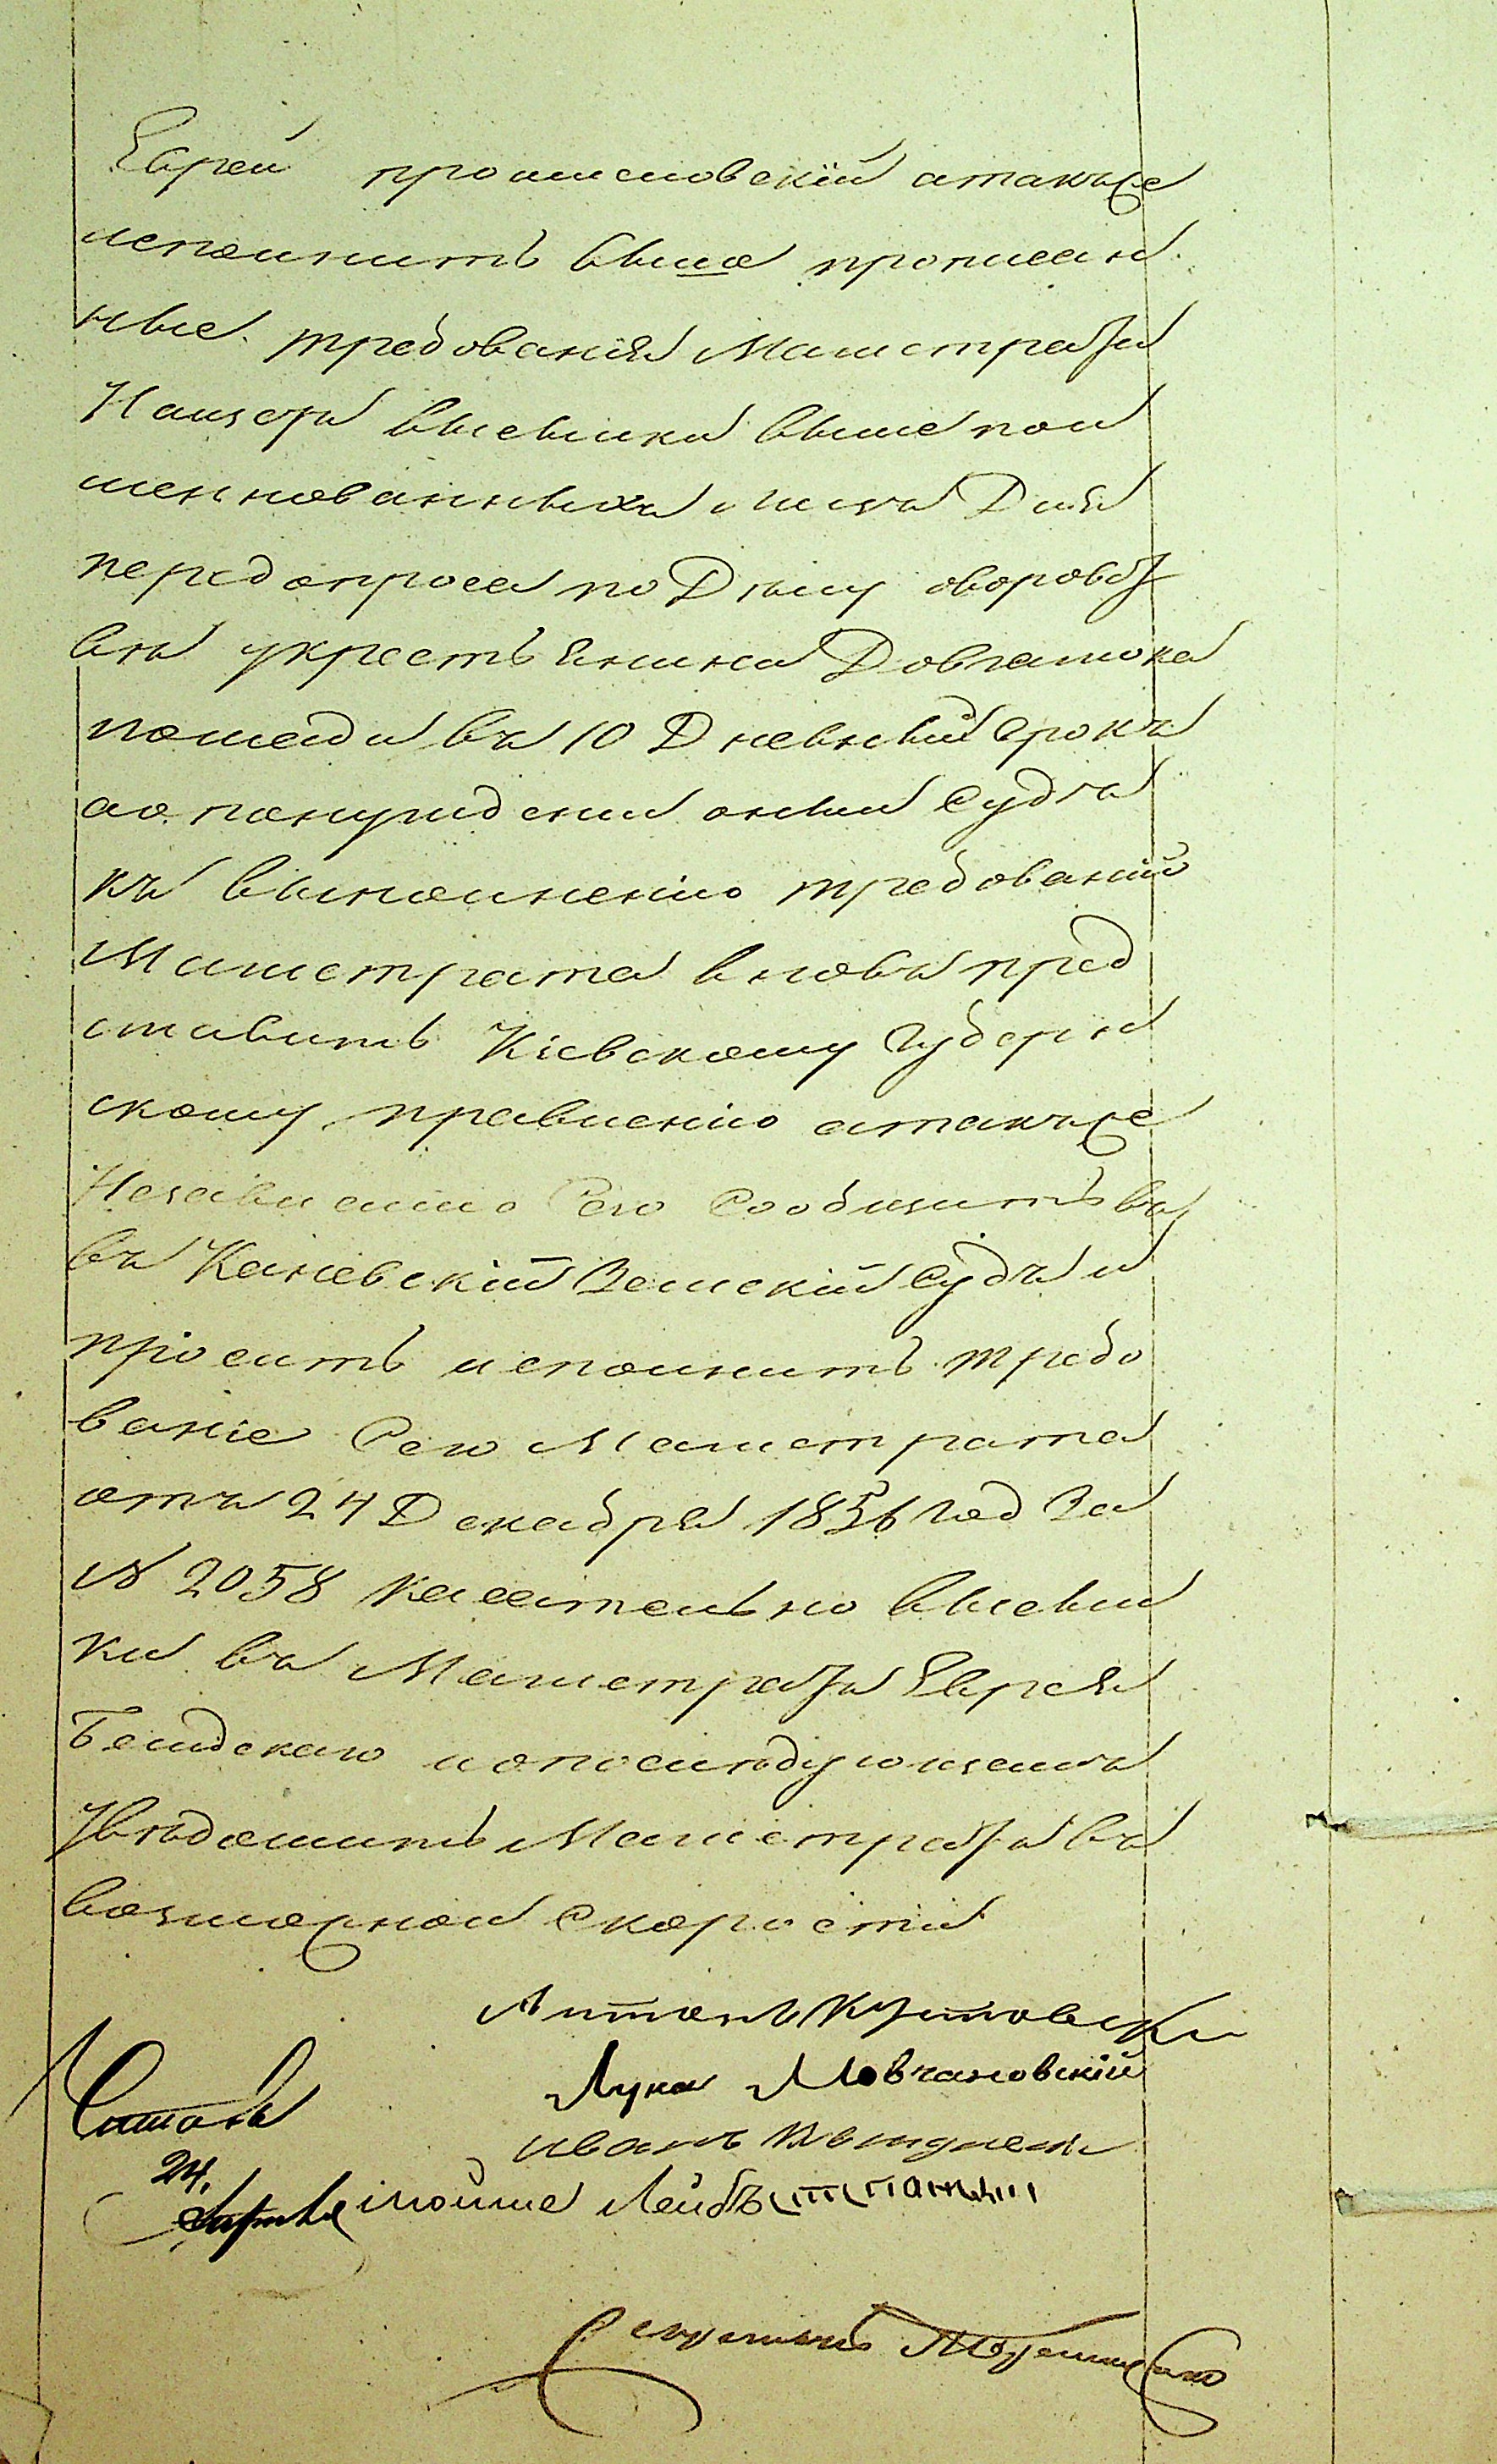 Еврей промисловскій атакъже
исполнить выше прописан
ные требованія Магистрата
Насчетъ высылки выше пои
менованныхъ лицъ Для
передопроса по Дѣлу оворовст
вѣ укрестьянина Довгалюка
лошади въ 10 Дневный срокъ
ао понуждении оный Судъ
къ выполнению требованій
Магистрата вновъ пред
ставить Кіевскому Губерн
скому правленію атакъже
Независимо Сего Сообщить въ
въ Каневскій Земскій Судъ и
просить исполнить требо
ваніе Сего Магистрата
отъ 24 Декабря 1856 год За
№ 2058 Касательно высыл
ки въ Магистратъ Еврея
исполѣдующемъ
Увѣдомить Магистратъ въ
возможной Скорости
Антонъ
Лука Мовчановскій
Читалъ
Иванъ
24.
Мойше Лейбъ
Секретарь